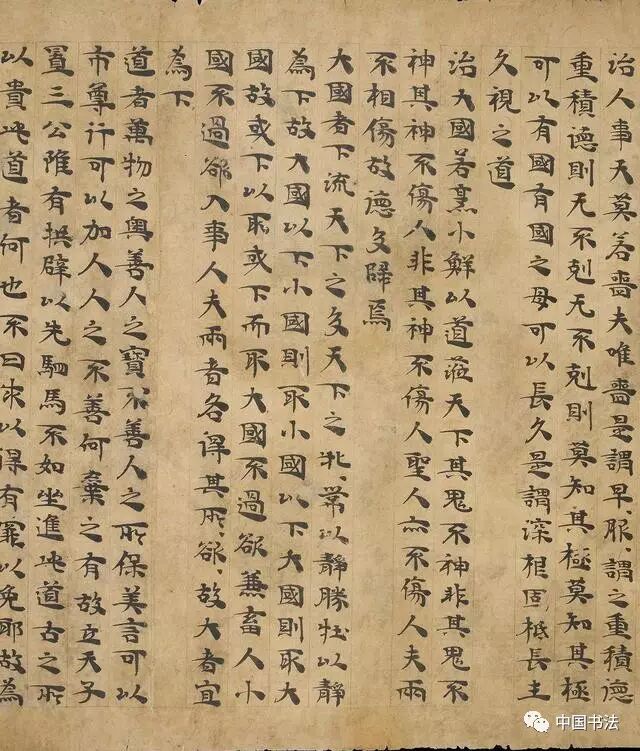 治人事天莫若嗇夫唯嗇是謂早服、謂之重積德
重積德則无不剋无不剋則莫知其極莫知其極
可以有國有國之母可以長久是謂深根固柢長生
久視之道
治大國若烹小鮮以道蒞天下其鬼不神非其鬼不
神其神不傷人非其神不傷人聖人亦不傷人夫兩
不相傷故德交歸焉
大國者下流天下之交天下之牝、常以靜勝牡以靜
為下故大國以下小國則取小國以下大國則取大
國故或下以取或下而取大國不過欲兼畜人小
國不過欲入事人夫兩者各得其所、欲、故大者宜
為下
道者萬物之奧善人之寶不善人之所保美言可以
市尊行可以加人人之不善何棄之有故立天子
置三公雖有拱璧以先駟馬不如坐進此道古之所
以貴此道者何也不曰求以得有罪以免耶故為
中国书法